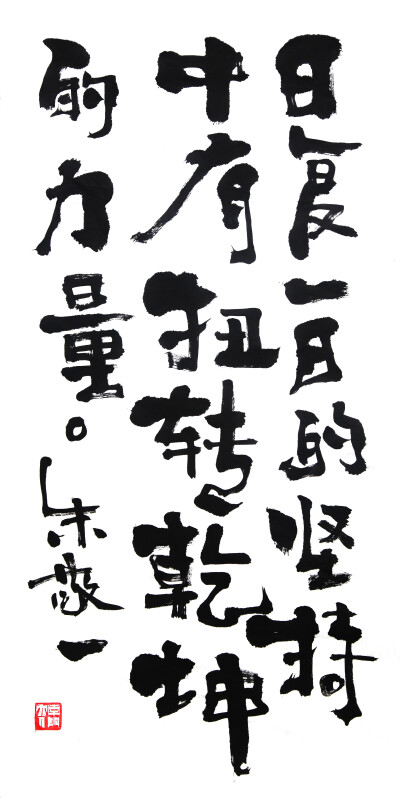 日复一日的坚持
中有扭转乾坤
的力量。朱敬一